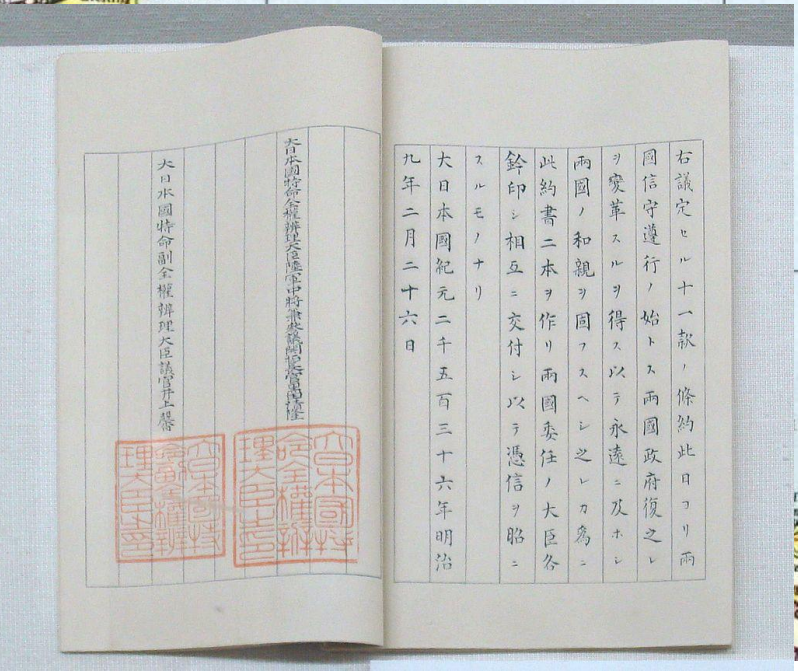 右議定セル十一款ノ條約此日ヨリ兩
國信守遵行ノ始トス兩國政府復之レ
ヲ變革スルヲ得ス以テ永遠ニ及ホシ
兩國ノ和親ヲ固フスヘシ之レカ爲ニ
此約書二本ヲ作リ兩國委任ノ大臣各
鈐印シ相互ニ交付シ以テ憑信ヲ昭ニ
スルモノナリ
大日本國紀元二千五百三十六年明治
九年二月二十六日
大日本國特命全權辨理大臣陸軍中將兼參議開拓長官黑田淸隆
大日本國特命副全權辨理大臣議官井上馨
大日本國特
命全權辦
理大臣之印
大日本國特
命副全權辦
理大臣之印